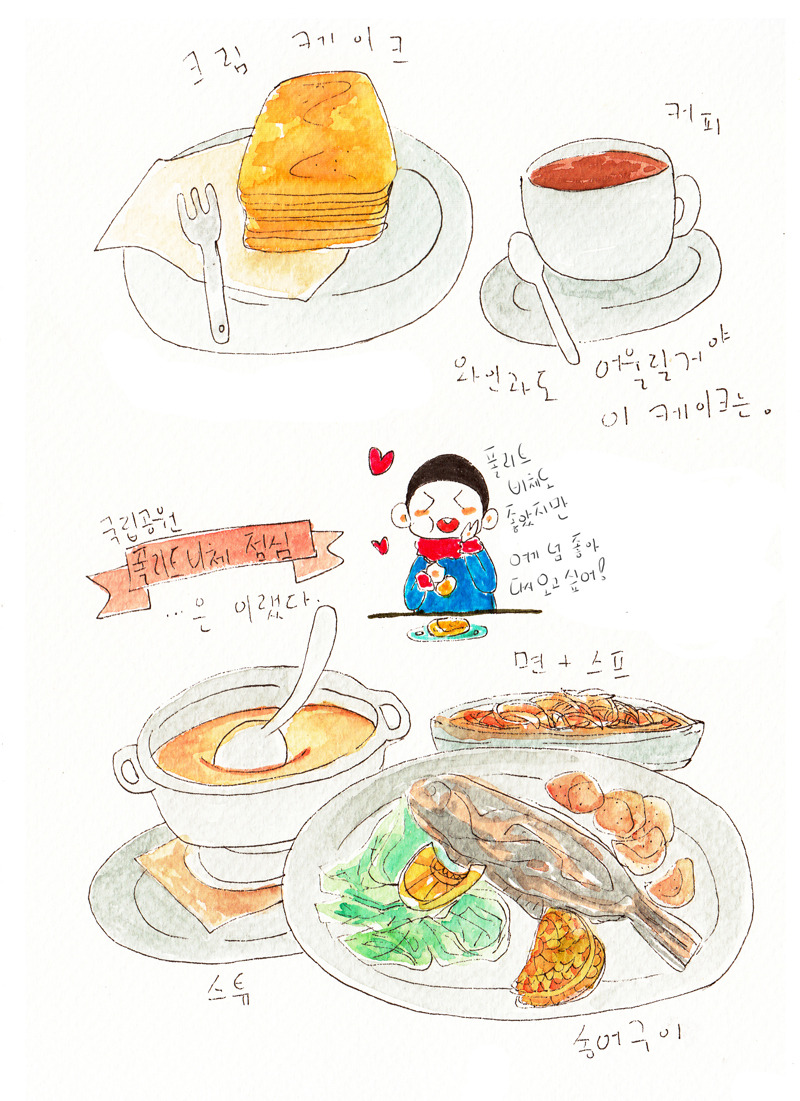 크림 케이크
커피
와인과도 어울릴거야
이 케이크는.
플리트
비체도
좋았지만
이게 넘 좋아
다시 오고 싶어!
국립공원
플리트비체 점심
...은 이랬다.
면 + 스프
스튜
송어구이